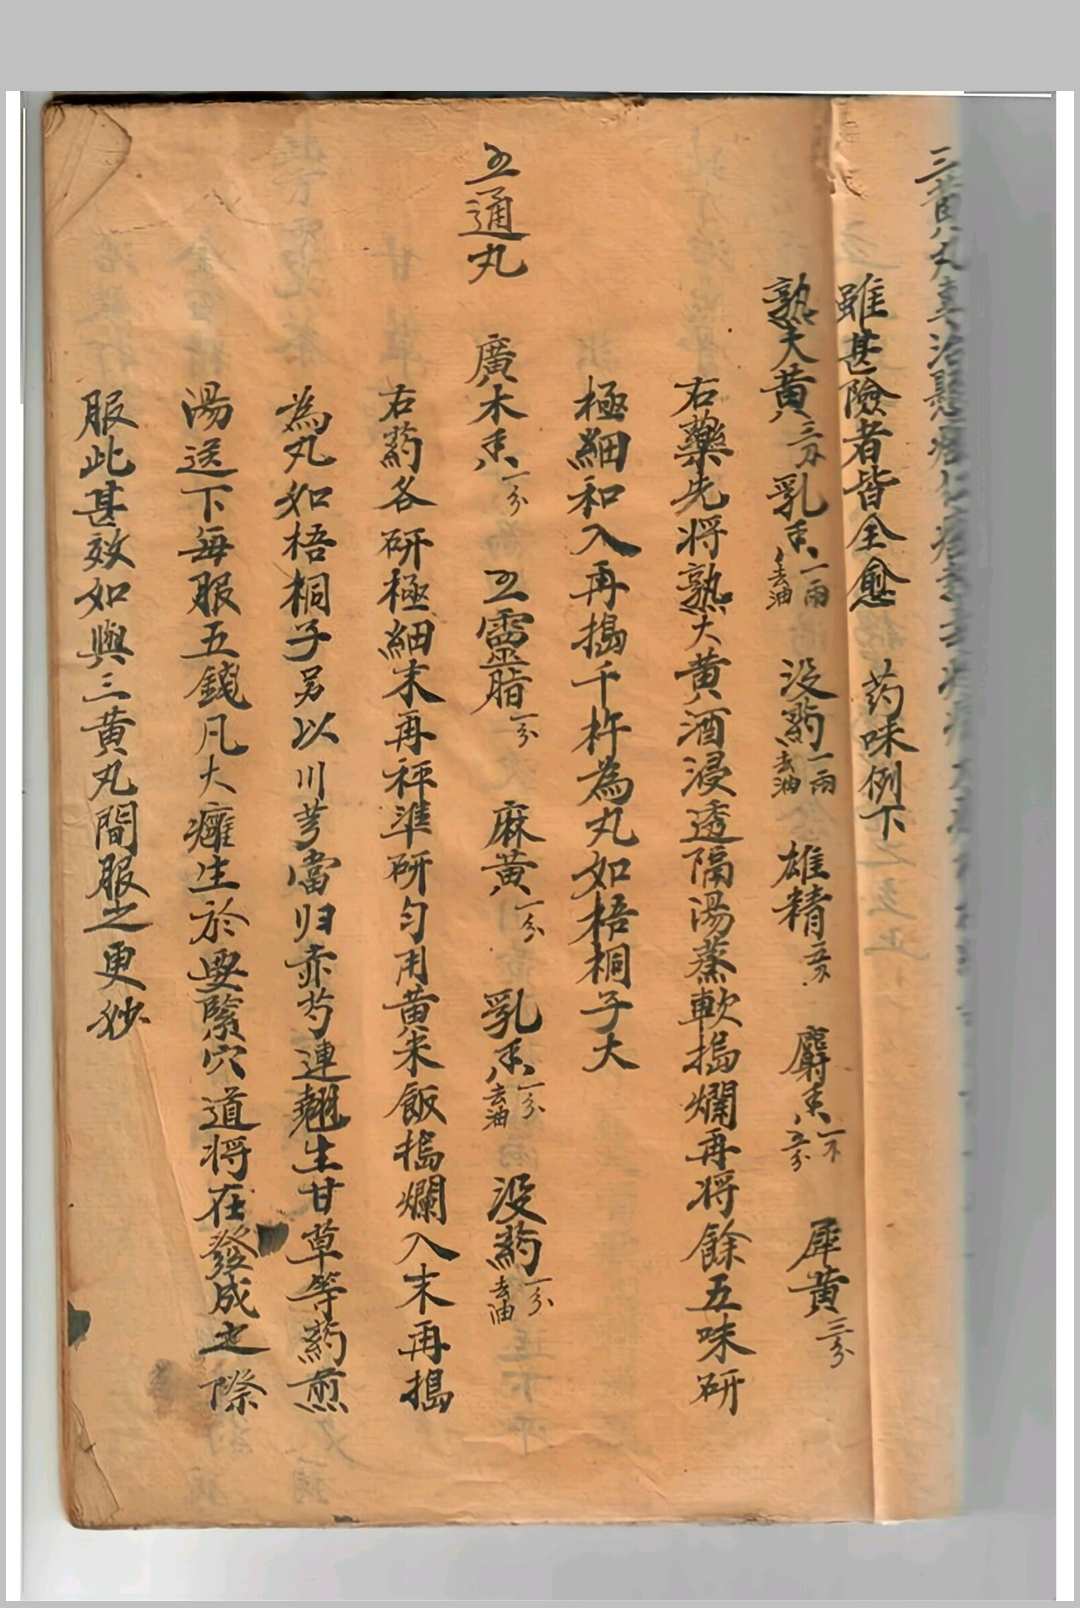 三黄丸專治懸癰
雖甚險者皆全愈 药味例下
熟大黄三分 乳香一兩去油 没药一兩去油 雄精五分 麝香一分五分 犀黄三分
右藥先将熟大黄酒浸透隔湯蒸軟搗爛再将餘五味研
極細和入再搗千杵為丸如梧桐子大
五通丸 廣木香一分 五靈脂一分 麻黄一分 乳香一分去油 没药一分去油
右药各研極細末再秤準研匀用黄米飯搗爛入末再搗
為丸如梧桐子另以川芎當归赤芍連翹生甘草等药煎
湯送下每服五錢凡大癰生於要緊穴道将在發成之際
服此甚效如與三黄丸間服之更妙